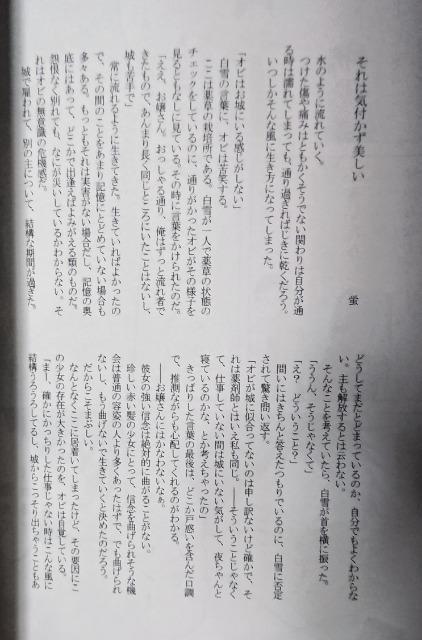 それは気付かず美しい
蛍
水のように流れていく。
つけた傷や痛みはともかくそうでない関わりは自分が通
る時は濡れてしまっても、通り過ぎればじきに乾くだろう。
いつしかそんな風に生き方になってしまった。
「オビはお城にいる感じがしない」
白雪の言葉に、オビは苦笑する。
ここは薬草の栽培所である。白雪が一人で薬草の状態の
チェックをしているのに、通りがかったオビがその様子を
見るともなしに見ている。その時に言葉をかけられたのだ。
「ええ、お嬢さん。おっしゃる通り、俺はずっと流れ者で
きたもので、あんまり長く同じところにいたことはないし、
城も苦手で」
常に流れるように生きてきた。生きていればよかったの
で、その間のことをあまり記憶にとどめていない場合も
多々ある。もっともそれは実害がない場合だし、記憶の奥
底にはあって、どこかで出逢えばよみがえる類のものだ。
怨恨なく別れても、なにが災いしているかわからない。そ
れはオビの無意識の危機感だ。
城で雇われて、別の主について、結構な期間が過ぎた。
どうしてまだとどまっているのか、自分でもよくわからな
い。主も解放するとは云わない。
そんなことを考えていたら、白雪が首を横に振った。
「ううん、そうじゃなくて」
「え？　どういうこと？」
問いにはきちんと答えたつもりでいるのに、白雪に否定
されて驚き問い返す。
「オビが城に似合ってないのは申し訳ないけど確かで、そ
れは薬剤師とはいえ私も同じ。――そういうことじゃなく
て、仕事していない間は城にいない気がして、夜ちゃんと
寝ているのかな、とか考えちゃったの」
きっぱりした言葉の最後は、どこか戸惑いを含んだ口調
で、推測ながらも心配してくれるのがわかる。
――お嬢さんにはかなわないなぁ。
彼女の強い信念は絶対的に曲がることがない。
珍しい赤い髪の少女にとって、信念を曲げられそうな機
会は普通の容姿の人より多くあったはずで、でも曲げられ
ないし、もう曲げないで生きていくと決めたのだろう。
だからこそまぶしい。
なんとなくここに居着いてしまったけど、その要因にこ
の少女の存在が大きかったのを、オビは自覚している。
「まー、確かにかっちりした仕事じゃない時はこんな風に
結構うろうろしてるし、城からこっそり出ちゃうこともあ